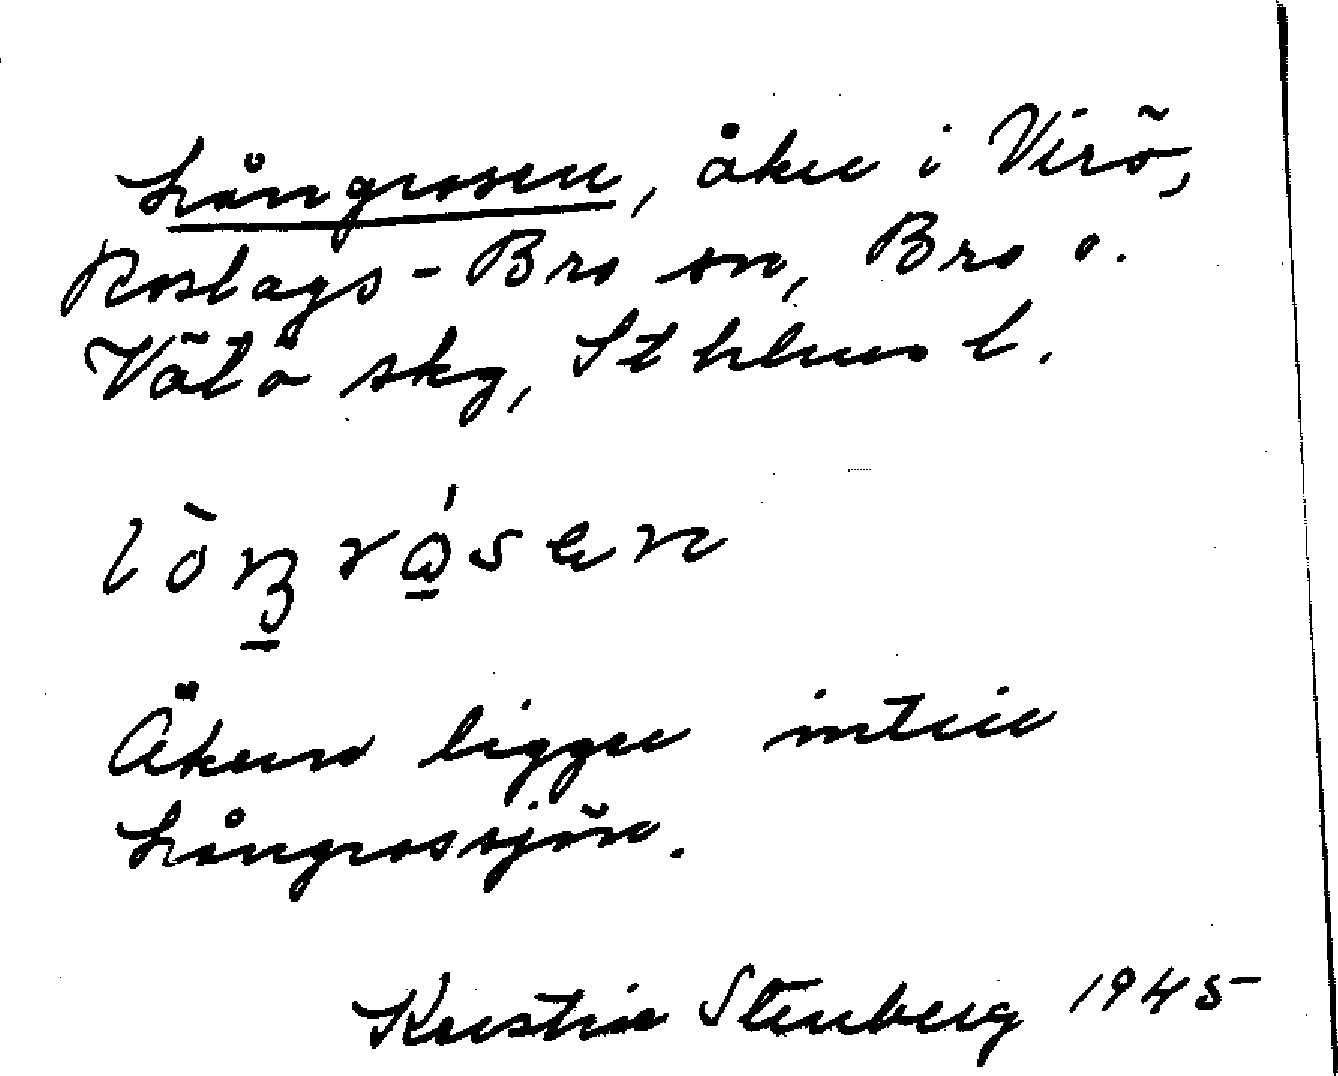 Långrosen, åker i Virö,
Roslags-Bro sn, Bro o.
Vätö skg, Sthlms l.
Åkern ligger intill
Långrossjön.
Kerstin Stenberg 1945